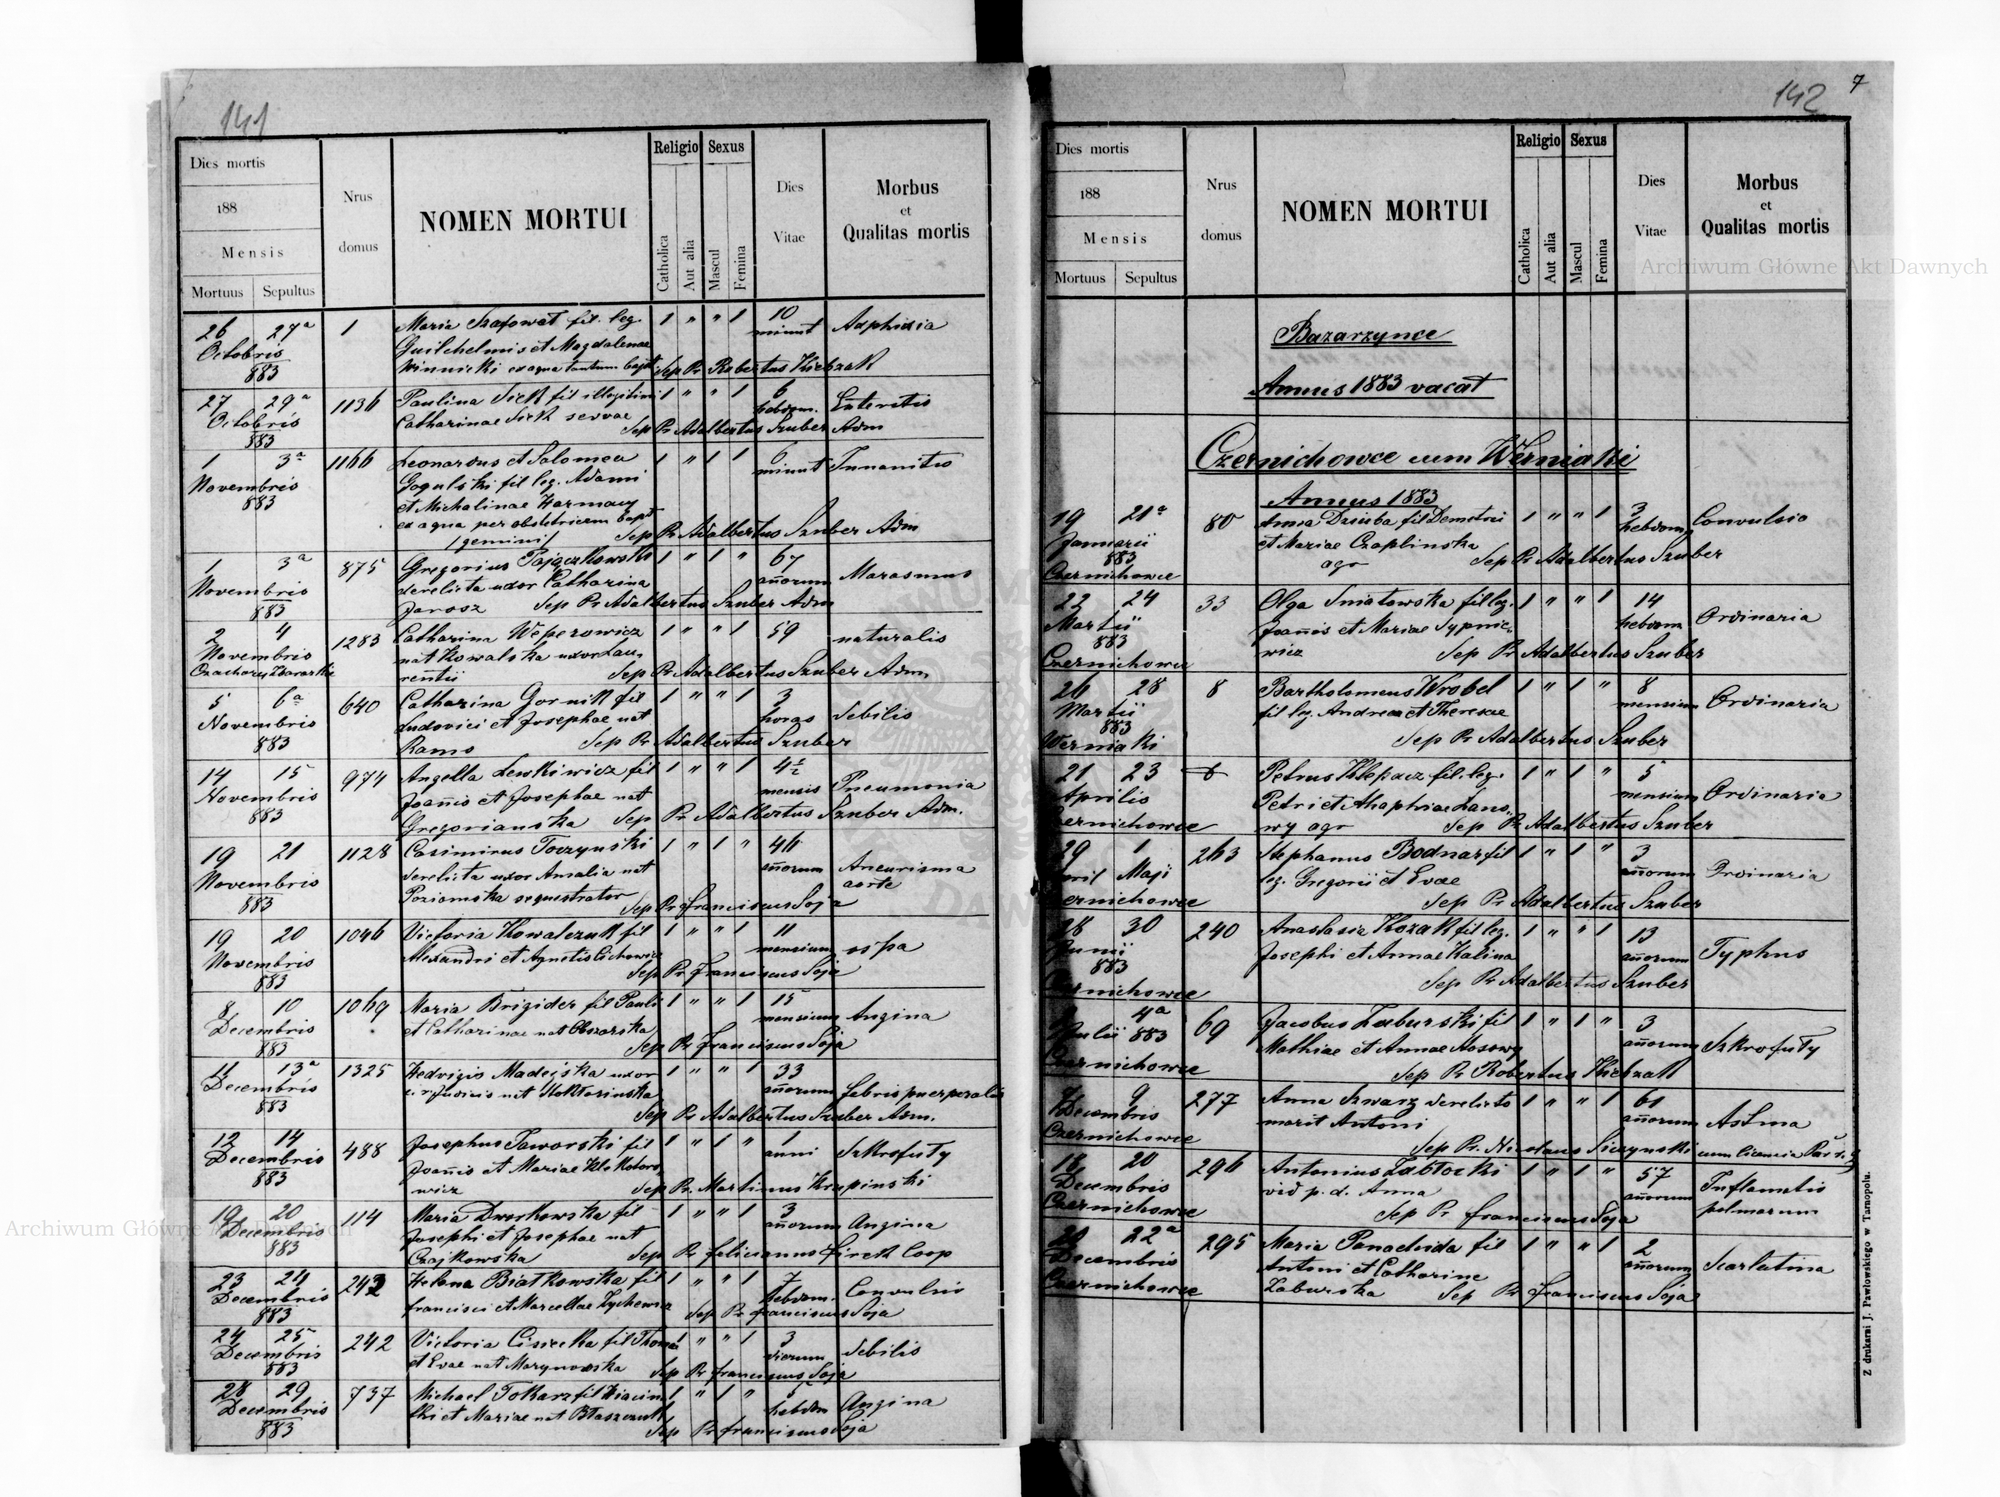 141
Dies mortis
188
Mensis
Mortuus Sepultus
Nrus domus
NOMEN MORTUI
Religio
Catholica
Aut alia
Sexus
Mascul
Femina
Dies Vitae
Morbus et Qualitas mortis
26 27a 1 Maria Szafowat fil. leg. 1 " " 1 10 Asphixia
Octobris Guilhelmis et Magdalenae minut
883 Winnicki ex aqua tantum bapt Sep Pr Robertus Kiebzak
27 29a 1136 Paulina Sick fil illegitimi 1 " " 1 6 Enteritis
Octobris Catharinae Sick servae hebdom.
883 Sep Pr Adalbertus Szuber Adm
1 3a 1166 Leonardus et Salomea 1 " 1 1 6 Innanitio
Novembris Gogulski fil leg. Adami minut
883 et Michalinae Harmacy
ex aqua per obstetricem bapt Sep Pr Adalbertus Szuber Adm
/gemini/
1 3a 875 Gregorius Pajączkowski 1 " 1 " 67 Marasmus
Novembris derelicta uxor Catharina añorum
883 Jarosz Sep Pr Adalbertus Szuber Adm
2 4 1283 Catharina Weperowicz 1 " " 1 59 naturalis
Novembris nat Kowalska uxor Lau,
Czachary Zbarazkie rentii Sep Pr Adalbertus Szuber Adm
5 6a 640 Catharina Gornik fil 1 " " 1 3 debilis
Novembris Ludovici et Josephae nat horas
883 Ramo Sep Pr Adalbertus Szuber
14 15 974 Angella Lewkiwicz fil 1 " " 1 4½ Pneumonia
Novembris Joañis et Josephae nat mensis
883 Gregorianska Sep Pr Adalbertus Szuber Adm.
19 21 1128 Casimirus Toczynski 1 " 1 " 46 Aneurisma
Novembris derelicta uxor Amalia nat añorum aorte
883 Poziomska sequestrator Sep Pr Franciscus Soja
19 20 1046 Victoria Kowalczuk fil 1 " " 1 11 ospa
Novembris Alexandri et Agnetis Cichowicz mensium
883 Sep Pr Franciscus Soja
8 10 1069 Maria Brigider fil Pauli 1 " " 1 15 Angina
Decembris et Catharinae nat Obszarska mensium
883 Sep Pr Franciscus Soja
11 13a 1325 Hedvigis Madejska uxor 1 " " 1 33 febris puerperalis
Decembris nat Stoktosinska añorum
883 Sep Pr Adalbertus Szuber Adm.
12 14 488 Josephus Jaworski fil 1 " 1 " 1 Szkrofuły
Decembris Joañis et Mariae Klekotoro, anni
883 wicz Sep Pr. Martinus Krupinski
19 20 114 Maria Dworkowska fil 1 " " 1 3 Angina
Decembris Josephi et Josephae nat añorum
883 Czajkowska Sep Pr Felicianus Firek Coop
23 24 242 Helena Białkowska fil 1 " " 1 7 Convulsio
Decembris Francisci et Marcellae Zychewicz hebdom.
883 Sep Pr Franciscus Soja
24 25 242 Victoria Cisiecka fil Thomae 1 " " 1 3 debilis
Decembris et Evae nat Marynowska dierum
883 Sep Pr Franciscus Soja
28 29 737 Michael Tokarz fil Hiacin, 1 " 1 " Angina
Decembris thi et Mariae nat Błaszczuk hebdom
883 Sep Pr Franciscus Soja
142 7
Dies mortis
188
Mensis
Mortuus Sepultus
Nrus domus
NOMEN MORTUI
Religio
Catholica
Aut alia
Sexus
Mascul
Femina
Dies Vitae
Morbus et Qualitas mortis
Bazarzynce
Annus 1883 vacat
Czernichowce cum Werniaki
Annus 1883
19 21a 80 Anna Dziuba fil Demetrii 1 " " 1 3 Convulsio
Januarii et Mariae Czaplinska hebdom
883 agr Sep Pr Adalbertus Szuber
Czernichowce
22 24 33 Olga Sniatowska fil leg. 1 " " 1 14 Ordinaria
Martii Joañis et Mariae Sypnie, hebdom
883 wicz Sep Pr Adalbertus Szuber
Czernichowce
26 28 8 Bartholomeus Wrobel 1 " 1 " 8 Ordinaria
Martii fil leg. Andreae et Theresae mensium
883 Sep Pr Adalbertus Szuber
Werniaki
21 23 Petrus Klepacz fil. leg. 1 " 1 " 5 Ordinaria
Aprilis Petri et Ahaphiae Lano, mensium
Czernichowce wy agr Sep Pr Adalbertus Szuber
29 1 263 Stephanus Bodnar fil 1 " 1 " 3 Ordinaria
April Maji leg. Gregorii et Evae añorum
Czernichowce Sep Pr Adalbertus Szuber
28 30 240 Anastasia Kozak fil leg. 1 " " 1 13 Typhus
Junii Josephi et Annae Kalina añorum
883 Sep Pr Adalbertus Szuber
Czernichowce
4a 69 Jacobus Zaburski fil 1 " 1 " 3 Szkrofuły
Julii 883 Mathiae et Annae Kosowy añorum
Czernichowce Sep Pr Robertus Kiebzak
7 9 277 Anna Szwarz derelicto 1 " " 1 61 Astma
Decembris marit Antoni añorum
Czernichowce Sep Pr. Nicolaus Siczynski cum licencia
18 20 296 Antonius Zabłocki 1 " 1 " 57 Inflamatio
Decembris vid p. d. Anna añorum pulmorum
Czernichowce Sep Pr Franciscus Soja
20 22a 295 Maria Panachida fil 1 " " 1 2 Scarlatina
Decembris Antoni et Catharine añorum
Czernichowce Zaburska Sep Pr Franciscus Soja
Z drukarni J. Pawłowskiego w Tarnopolu.
Archiwum Główne Akt Dawnych
Archiwum Główne Akt Dawnych